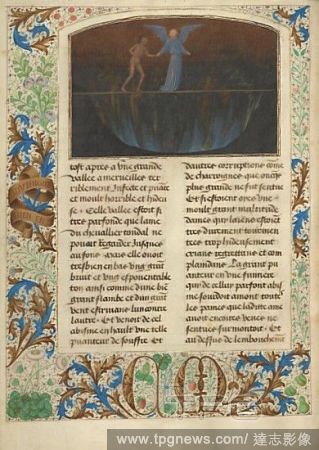 tost apres a vne grande
vallee a merueilles ter
riblement Infecte et
et moult horrible et hideu
se Celle vallee estoit si
tres parfonde que lame
du cheuallier tondal ne
pouoit regarder Jusques
au fons Mais elle ouoit
tresbien en bas vng grant
bruit et vng espouentable
ton ainsi comme dune
grant flambe et dun grant
vent lun contre
lautre Et venoit de cel
abisme en hault vne telle
puanteur de souffre et
dautres corruptions come
de charongnes que
plus grande ne fut sentue
Et si estoient vne
moult grant multitude
dames qui estoient
tres durement tourmen
tees trop hideusement
crians regrettans et com
plaindans La grant pu
anteur en vne fumiere
que de cellui parfont abis
me sourdoit amont toutes
les paines que ladite ame
auoit encores veues ne
sentues surmontoit Et
au dessus de lembouchem
BIEN
www.tpgnews.com / 達志影像